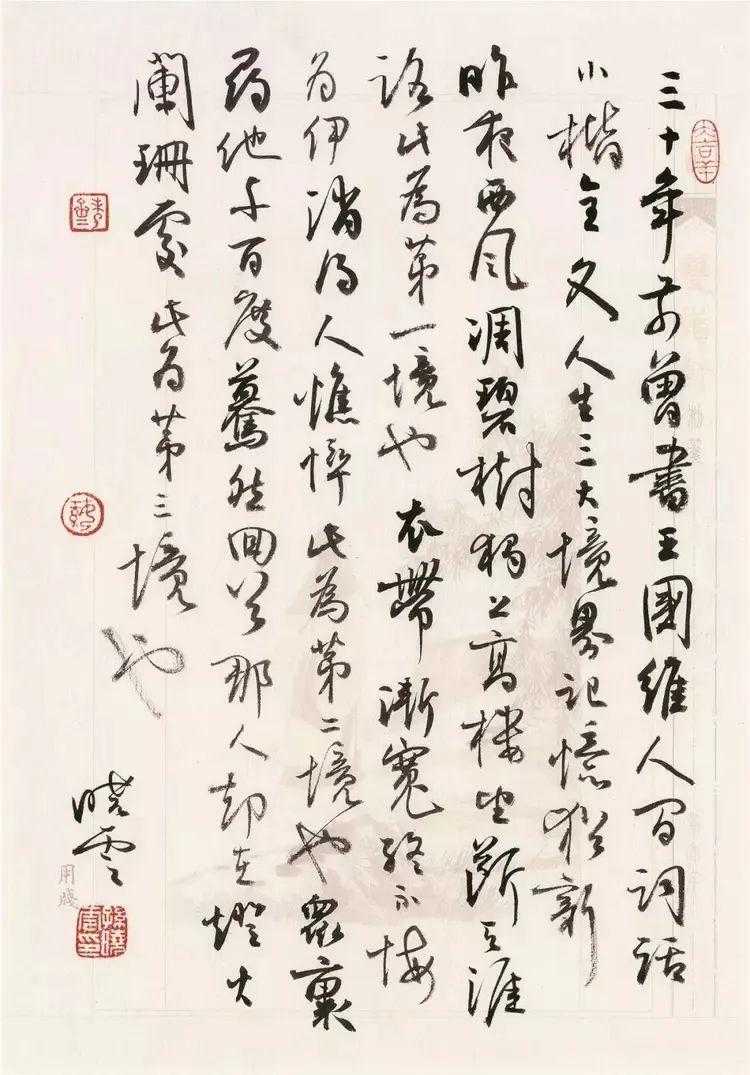 三十年前曾書王國維人間詞話
小楷全文人生三大境界記憶猶新
昨夜西風凋碧樹獨上高樓望斷天涯
路此為第一境也衣帶漸寬終不悔
為伊消得人憔悴此為第二境也眾裏
尋他千百度驀然回首那人却在燈火
闌珊處此為第三境也
曉雲
用牋
孫曉雲印
大吉羊